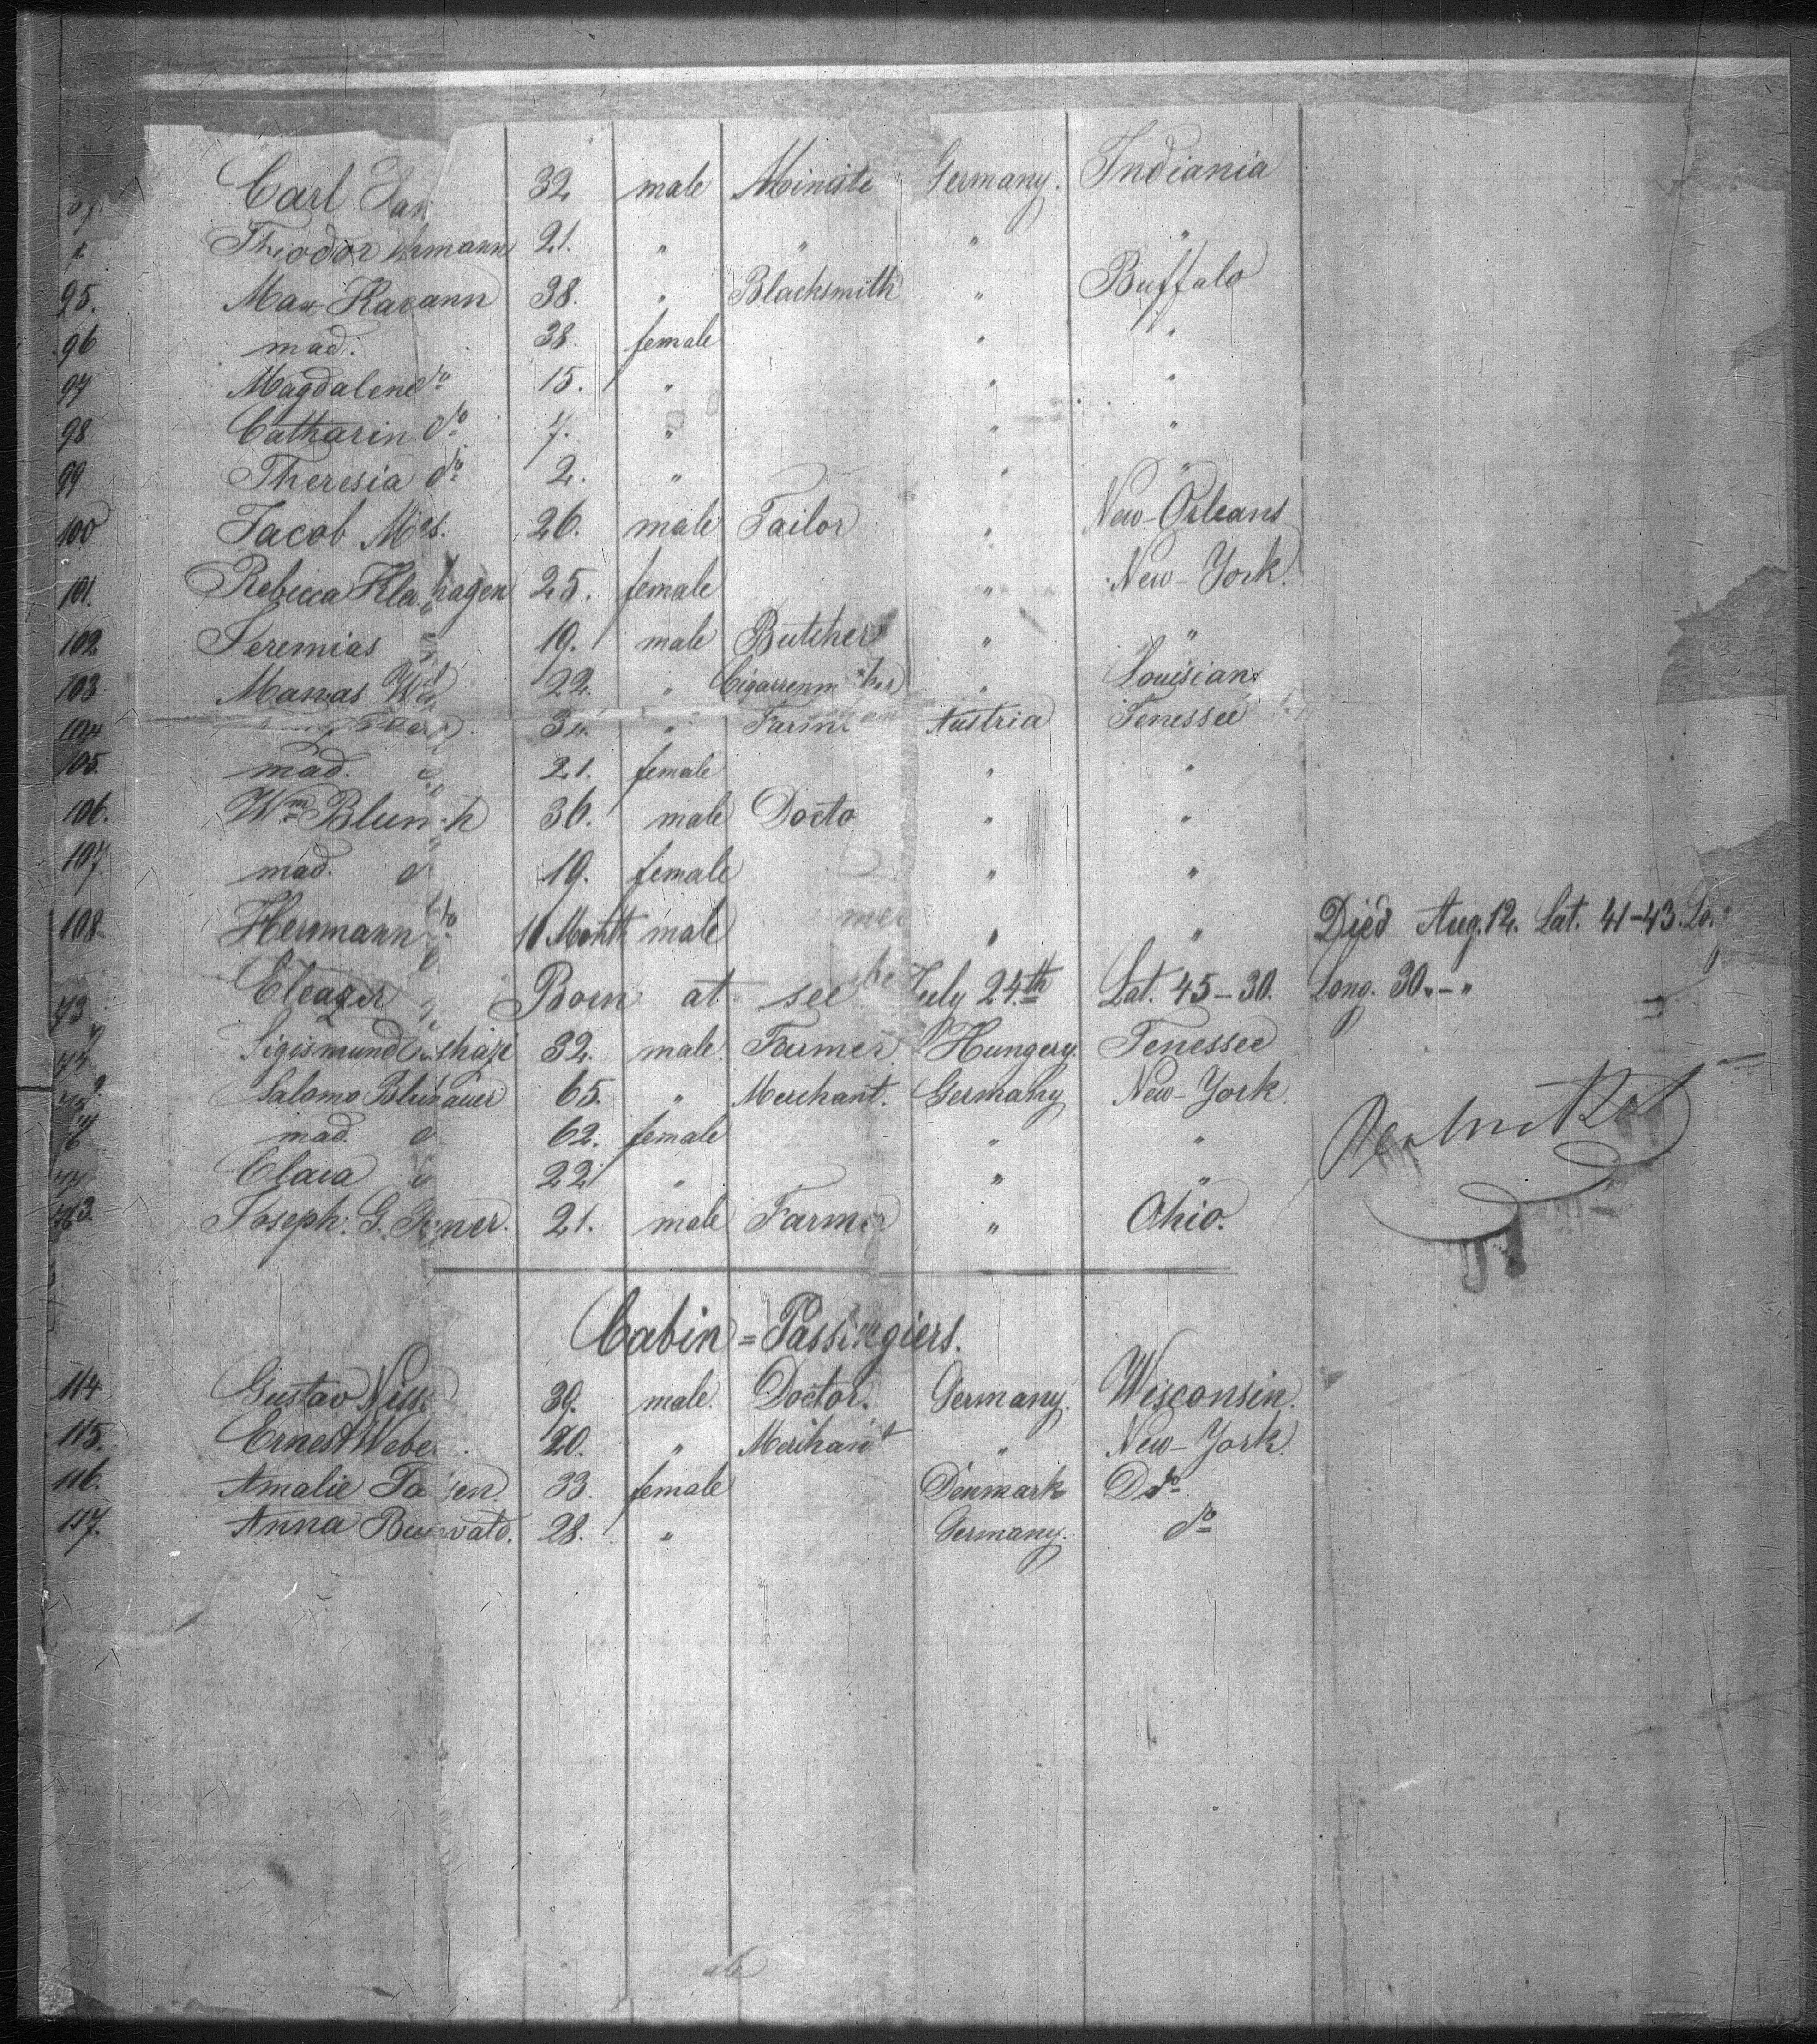 Carl 32 male Ministe Germany. Indiania
Theodor 21. " " " "
95. Max Kavann 38. " Blacksmith " Buffalo
96 mad. 38. female " "
97 Magdalene do 15. " " "
98 Catharin do 7. " " "
99 Theresia do 2. " " "
100 Jacob 26. male Tailor " New-Orleans
101. Rebicca hagen 25. female " New-York.
102 Jeremias 19. male Butcher " "
103 Manas 22. " " Louisian
104 " Farm Austria Tenessee
105. mad. 21. female " "
106. Wm 36. male Docto " "
107. mad. 19. female " "
108. Hermann do Month male " " Died Aug. 12. Lat. 41-43. Lo.
Eleazer Born at see July 24th Lat. 45-30. Long. 30.-"
Sigismund 32. male. Farmer Hungery. Tenessee
Salomo 65. " Merchant. Germany New-York.
mad. 62. female " "
Clara 22 " " "
Joseph. G. 21. male Farmer " Ohio.
Cabin=Passingiers.
114 Gustav 39. male. Doctor. Germany. Wisconsin.
115. Ernest Webe 20. " Merchant " New-York.
116. Amalie 33. female Denmark Do
117. Anna 28. " Germany. do